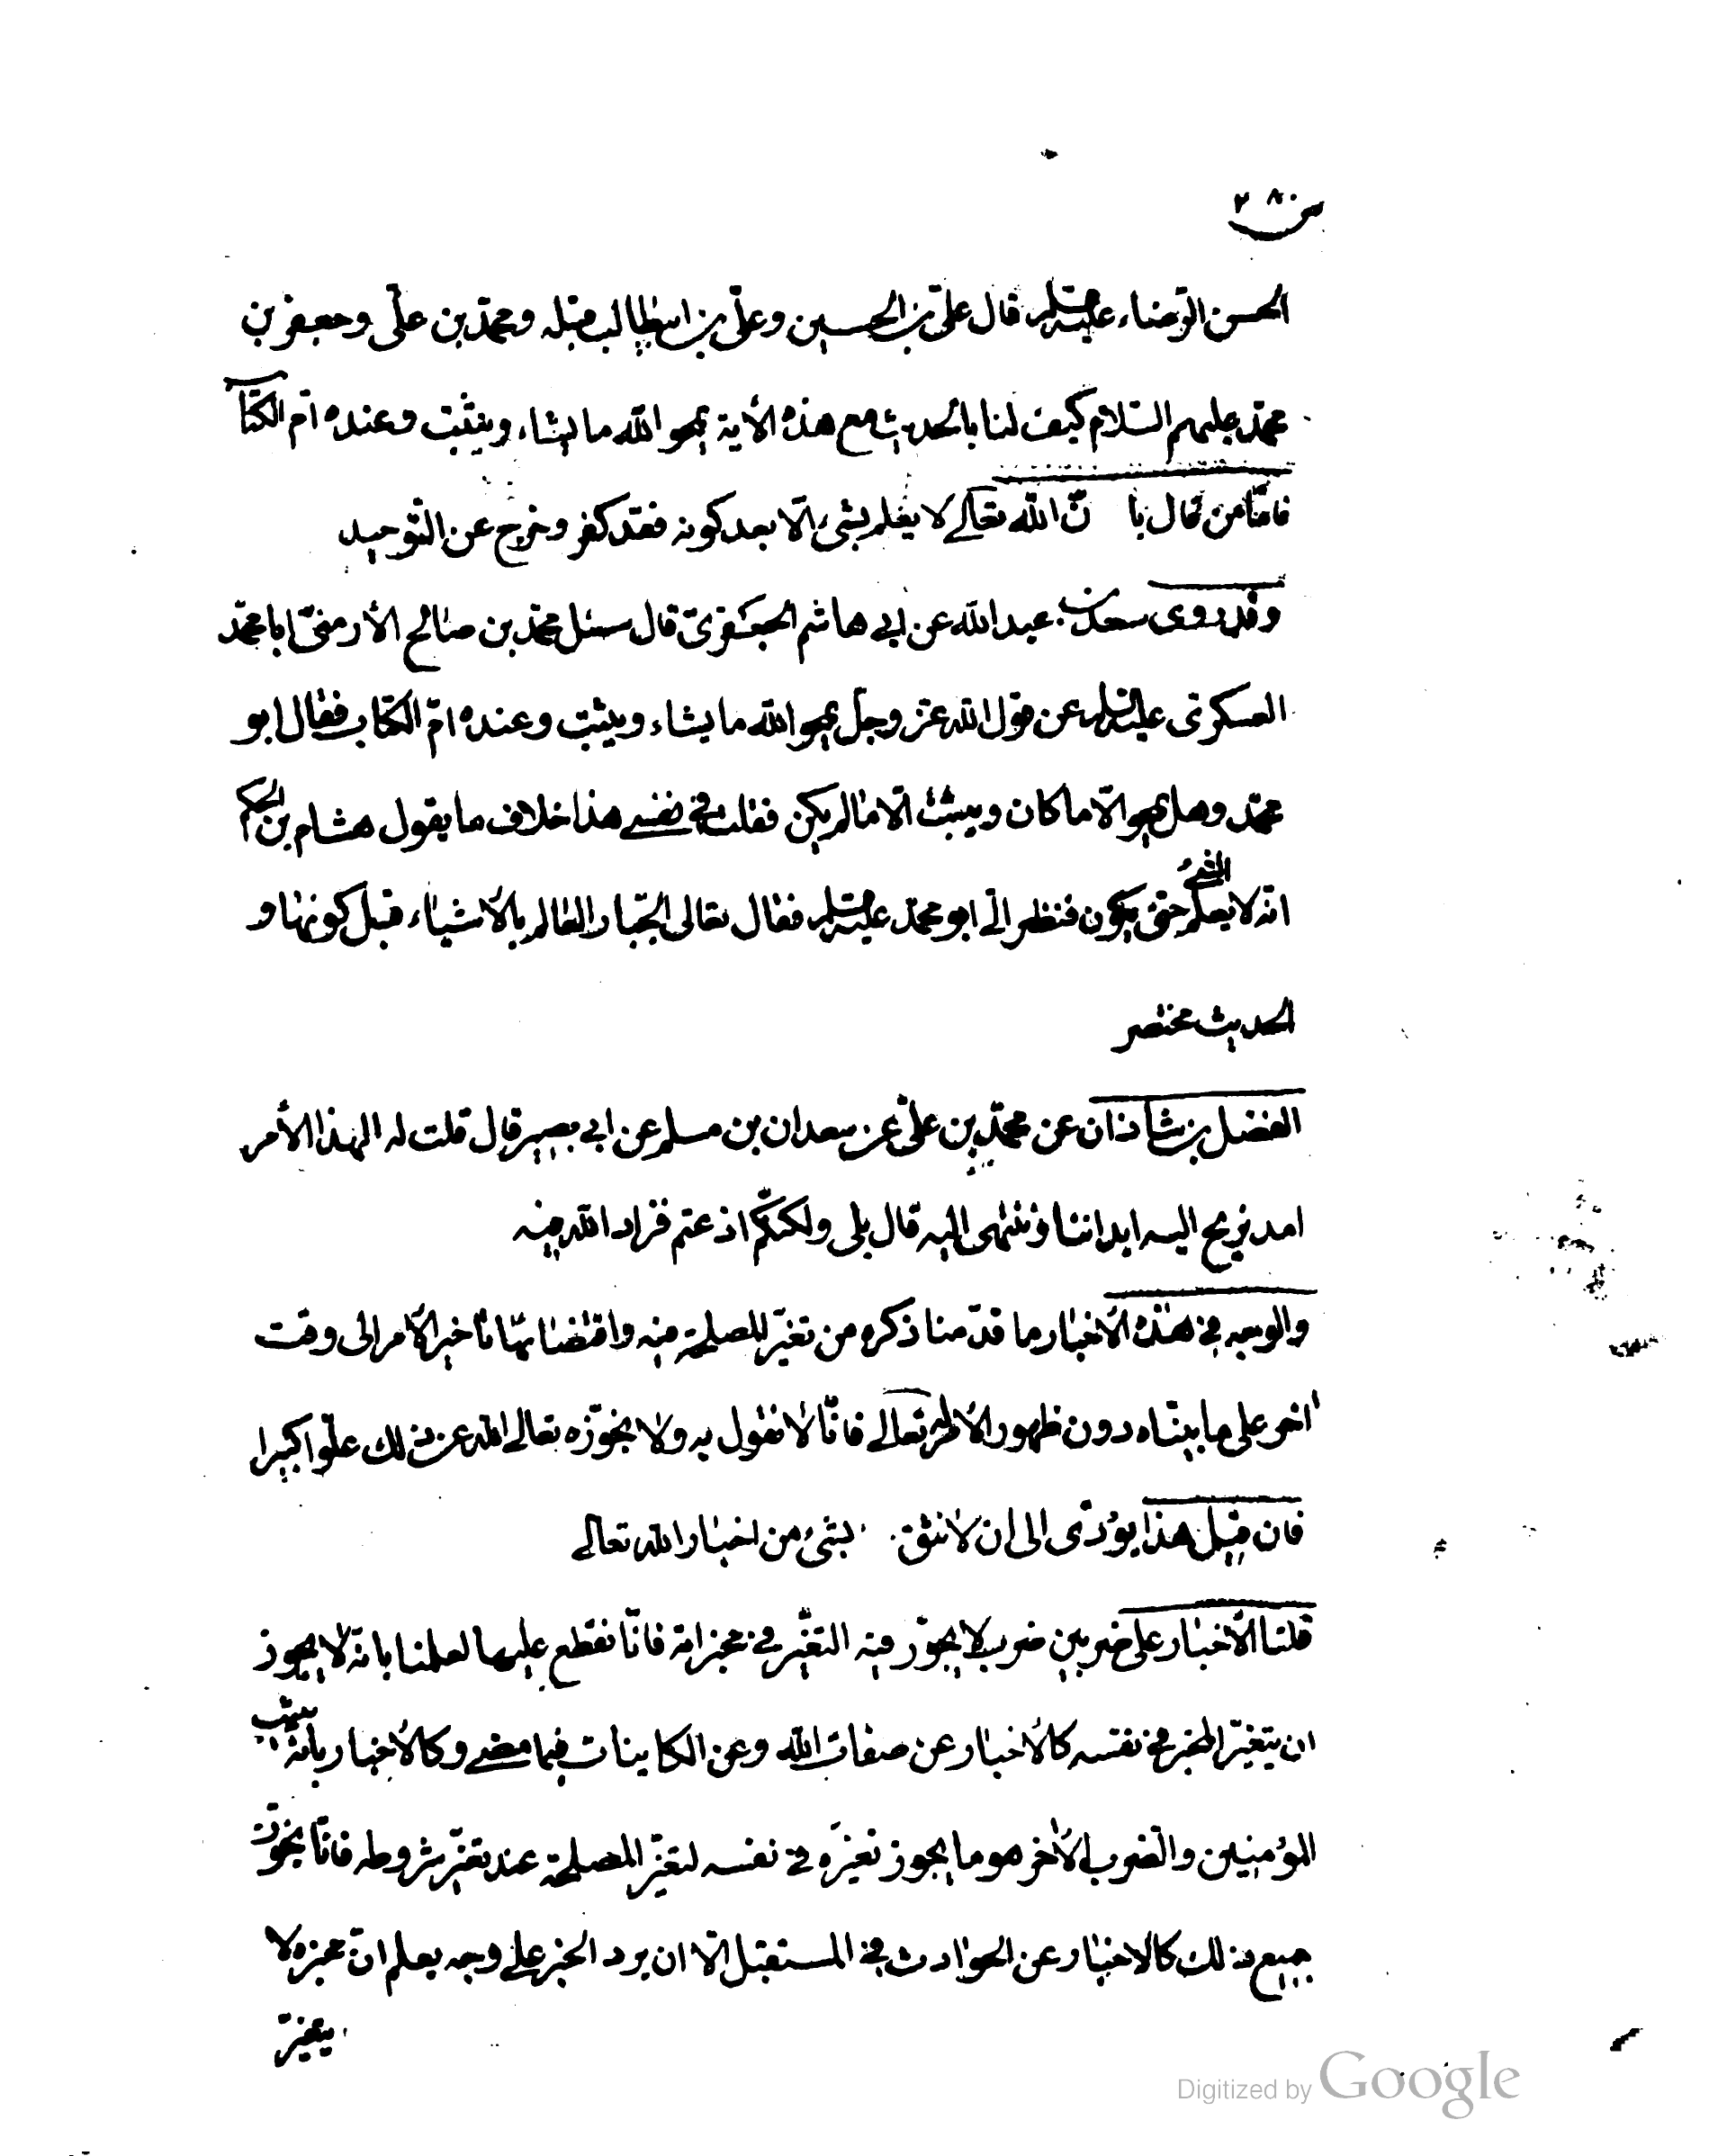 ص ٢٨٠
الحسن الرضاء عليه السلم قال علىّ بن الحسين وعلىّ بن ابيطالب قبله ومحمّد بن علىّ وجعفر بن
محمّد عليهم السّلام كيف لنا بالحديث مع هذه الأية يمحو اللّه ما يشاء ويثبت وعنده امّ الكتاب
فامّا من قال بانّ اللّه تعالى لا يعلم بشئ الّا بعد كونه فقد كفر وخرج عن التّوحيد
وقد روى سعد بن عبد اللّه عن ابى هاشم الجعفرىّ قال سئل محمّد بن صالح الأرمنىّ ابا محمّد
العسكرى عليه السلم عن قول اللّه عزّ وجلّ يمحو اللّه ما يشاء ويثبت وعنده امّ الكتاب فقال ابو
محمّد وهل يمحو الّا ما كان ويثبت الّا ما لم يكن فقلت فى نفسى هذا خلاف ما يقول هشام بن الحكم
انّه لا يعلم الشئ حتى يكون فنظر الىّ ابو محمّد عليه السلم فقال تعالى الجبّار العالم بالأشياء قبل كونها و
الحديث مختصر
الفضل بن شاذان عن محمّد بن علىّ عن سعدان بن مسلم عن ابى بصير قال قلت له الهذا الأمر
امد نريح اليه ابداننا وننتهى اليه قال بلى ولكنّكم اذعتم فزاد اللّه فيه
والوجه فى هذه الأخبار ما قدّمنا ذكره من تغيّر المصلحة فيه واقتضائها تأخير الأمر الى وقت
اخر على ما بيّناه دون ظهور الأمر له تعالى فانّا لا نقول به ولا نجوّزه تعالى اللّه عن ذلك علوّا كبيرا
فان قيل هذا يؤدّى الى ان لا نثق بشئ من اخبار اللّه تعالى
قلنا الأخبار على ضربين ضرب لا يجوز فيه التغيّر فى مخبراته فانّا نقطع عليها لعلمنا بانّه لا يجوز
ان يتغيّر المخبر فى نفسه كالأخبار عن صفات اللّه وعن الكاينات فيما مضى وكالأخبار بانّه يثيب
المؤمنين والضّرب الأخر هو ما يجوز تغيّره فى نفسه لتغيّر المصلحة عند تغيّر شروطه فانّا نجوّز
جميع ذلك كالاخبار عن الحوادث فى المستقبل الّا ان يرد الخبر على وجه يعلم انّ مخبره لا
يتغيّر
Digitized by Google